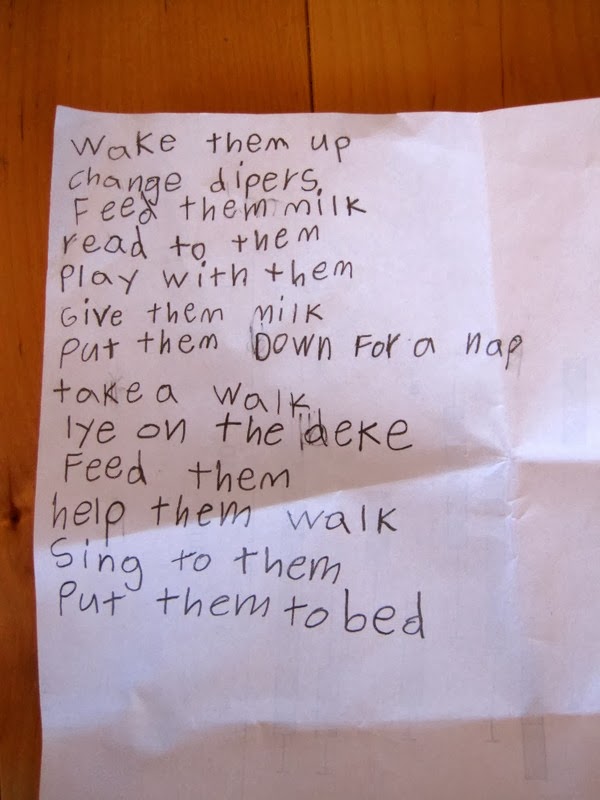 wake them up
change dipers.
Feed them milk
read to them
Play with them
Give them milk
Put them Down For a nap
take a walk
lye on the deke
Feed them
help them walk
Sing to them
Put them to bed